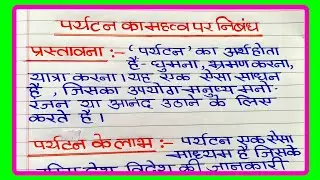 पर्यटन का महत्व पर निबंध
प्रस्तावना :- 'पर्यटन' का अर्थ होता
है- घुमना, भ्रमण करना,
यात्रा करना। यह एक ऐसा साधन
है, जिसका उपयोग मनुष्य मनो-
रंजन या आनंद उठाने के लिए
करते हैं।
पर्यटन के लाभ :- पर्यटन एक ऐसा
माध्यम है जिसके
देश विदेश की जानकारी